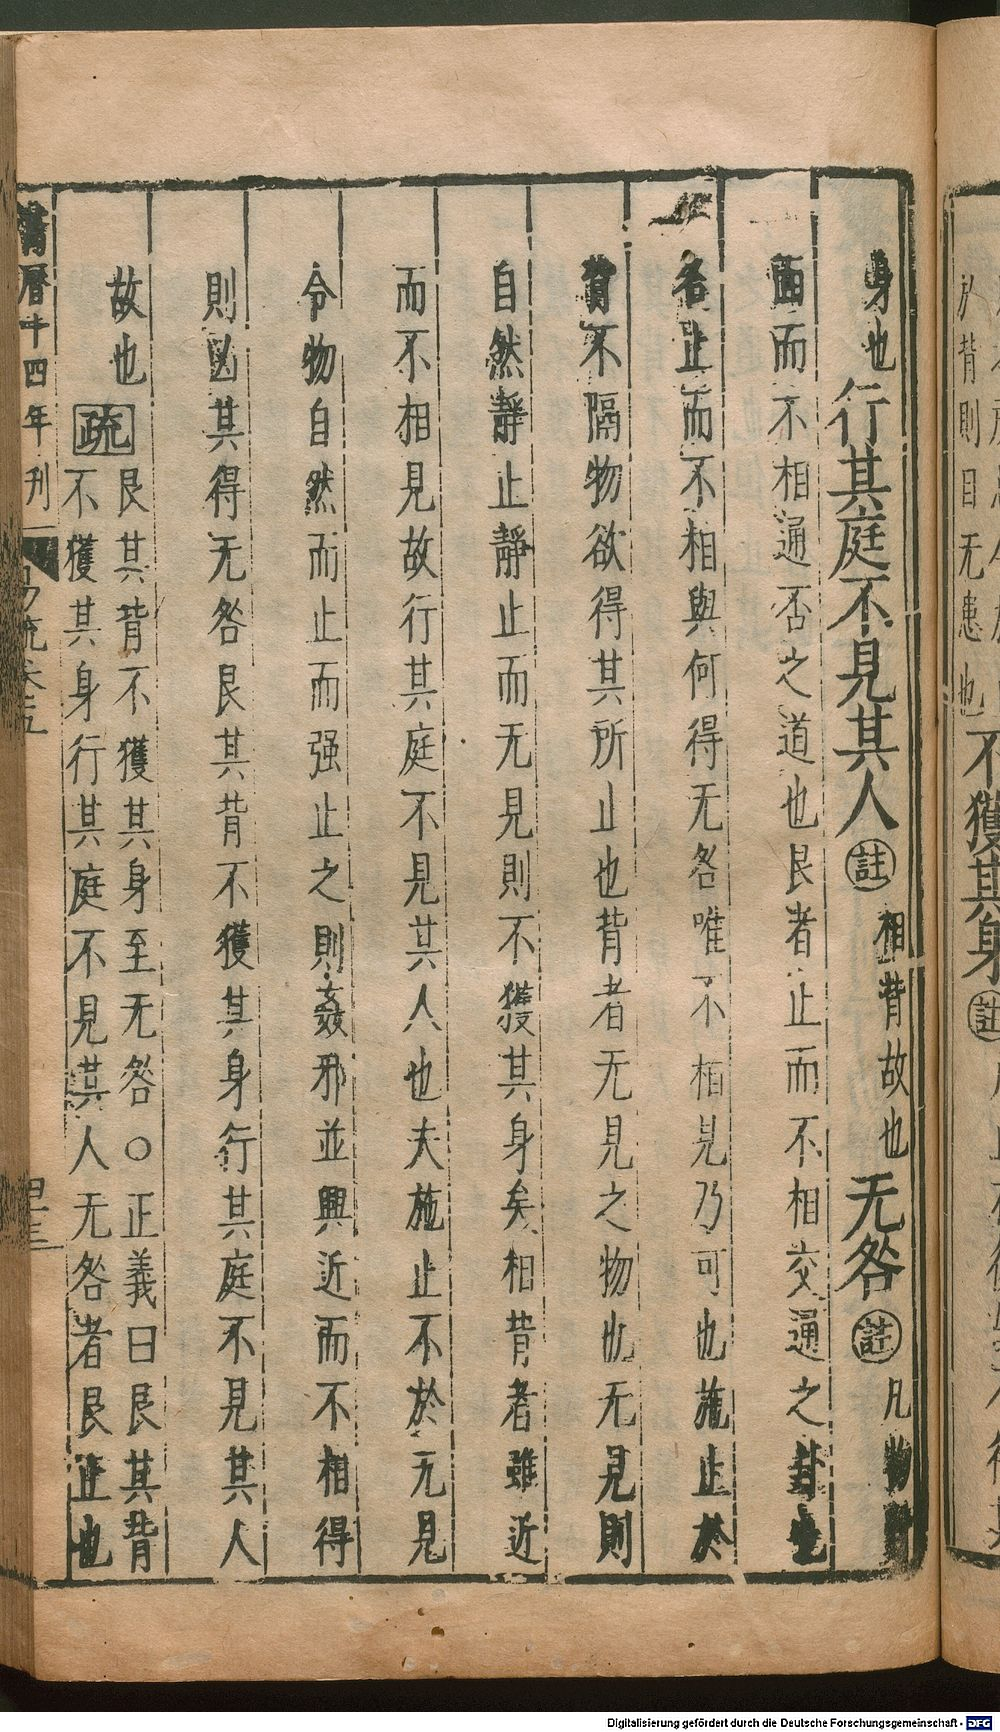 身也行其庭不見其人註相背故也无咎註凡物對
面而不相通否之道也艮者止而不相交通之卦也
各止而不相與何得无咎唯不相見乃可也施止於
背不隔物欲得其所止也背者无見之物也无見則
自然靜止靜止而无見則不獲其身矣相背者雖近
而不相見故行其庭不見其人也夫施止不於无見
令物自然而止而强止之則姦邪並興近而不相得
則凶其得无咎艮其背不獲其身行其庭不見其人
故也疏
艮其背不獲其身至无咎〇正義曰艮其背
不獲其身行其庭不見其人无咎者艮止也
萬曆十四年刊
易疏卷五
於背則目无患也
不獲其身註
Digitalisierung gefördert durch die Deutsche Forschungsgemeinschaft - DFG